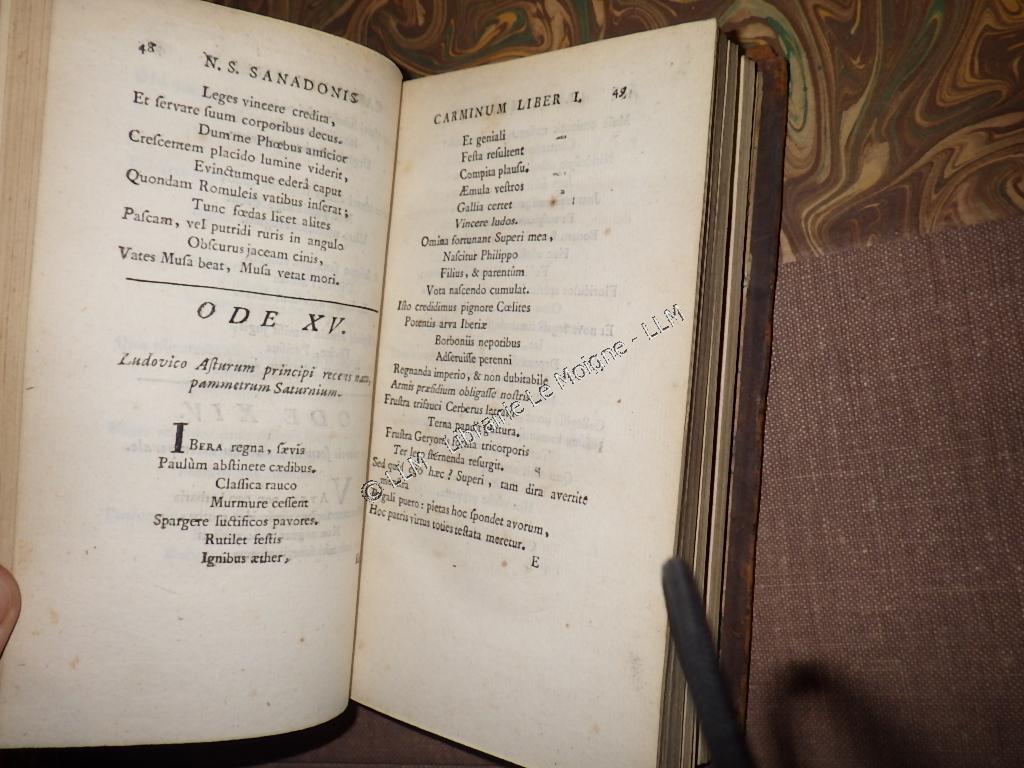 48
N. S. SANADONIS
Leges vincere credita,
Et servare suum corporibus decus.
Dum me Phœbus amicior
Crescentem placido lumine viderit,
Evinctumque ederâ caput
Quondam Romuleis vatibus inserat;
Tunc fœdas licet alites
Pascam, vel putridi ruris in angulo
Obscurus jaceam cinis,
Vates Musa beat, Musa vetat mori.
ODE XV.
Ludovico Asturum principi recens nato,
pammetrum Saturnium.
IBERA regna, sævis
Paulùm abstinete cædibus.
Classica rauco
Murmure cessent
Spargere luctificos pavores.
Rutilet festis
Ignibus æther,
CARMINUM LIBER I. 49
Et geniali
Festa resultent
Compita plausu.
Æmula vestros
Gallia certet
Vincere ludos.
Omina fortunant Superi mea,
Nascitur Philippo
Filius, & parentûm
Vota nascendo cumulat.
Isto credidimus pignore Cœlites
Potentis arva Iberiæ
Borboniis nepotibus
Adseruisse perenni
Regnanda imperio, & non dubitabile
Armis præsidium obligasse nostris.
Frustra trifauci Cerberus
Terna
Frustra Geryonis tricorporis
Ter sternenda resurgit.
Sed hæc? Superi, tam dira avertite
Regali puero: pietas hoc spondet avorum,
Hoc patris virtus toties testata meretur.
E
© LLM - Librairie Le Moigne - LLM